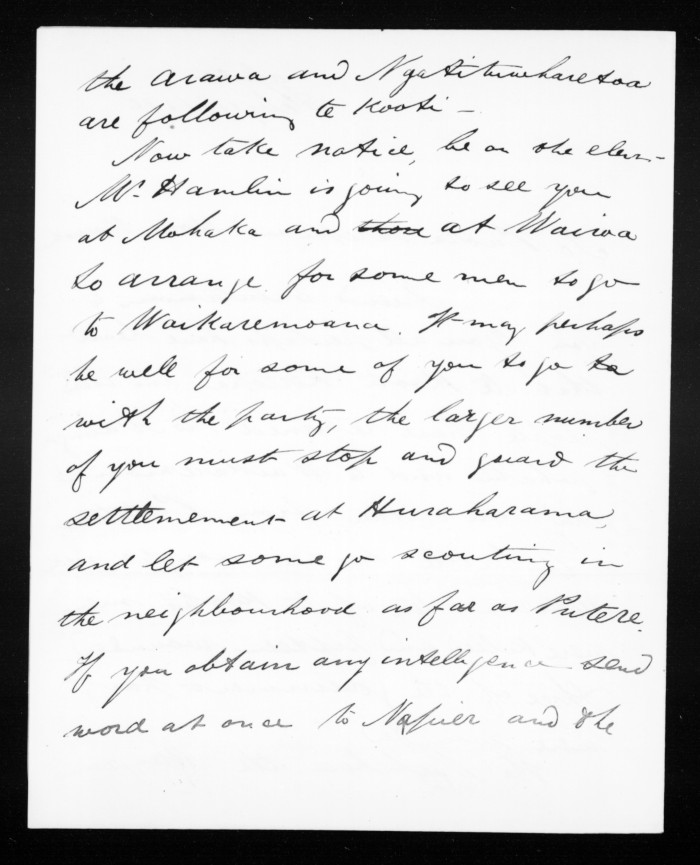 the Arawa and Ngatituwharetoa
are following te Kooti —
Now take notice, be on the
Mr. Hamlin is going to see you
at Mohaka and at Wairoa
to arrange for some men to go
to Waikaremoana. It may perhaps
be well for some of you to go to
with the party, the larger number
of you must stop and guard the
settlemement at Huraharama,
and let some go scouting in
the neighbourhood as far as Putere.
If you obtain any intelligence send
word at once to Napier and the